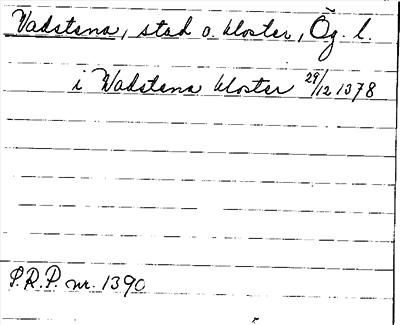 Vadstena, stad o. kloster, Ög. l.
i Wadstena kloster 29/12 1378
S.R.P. nr. 1390